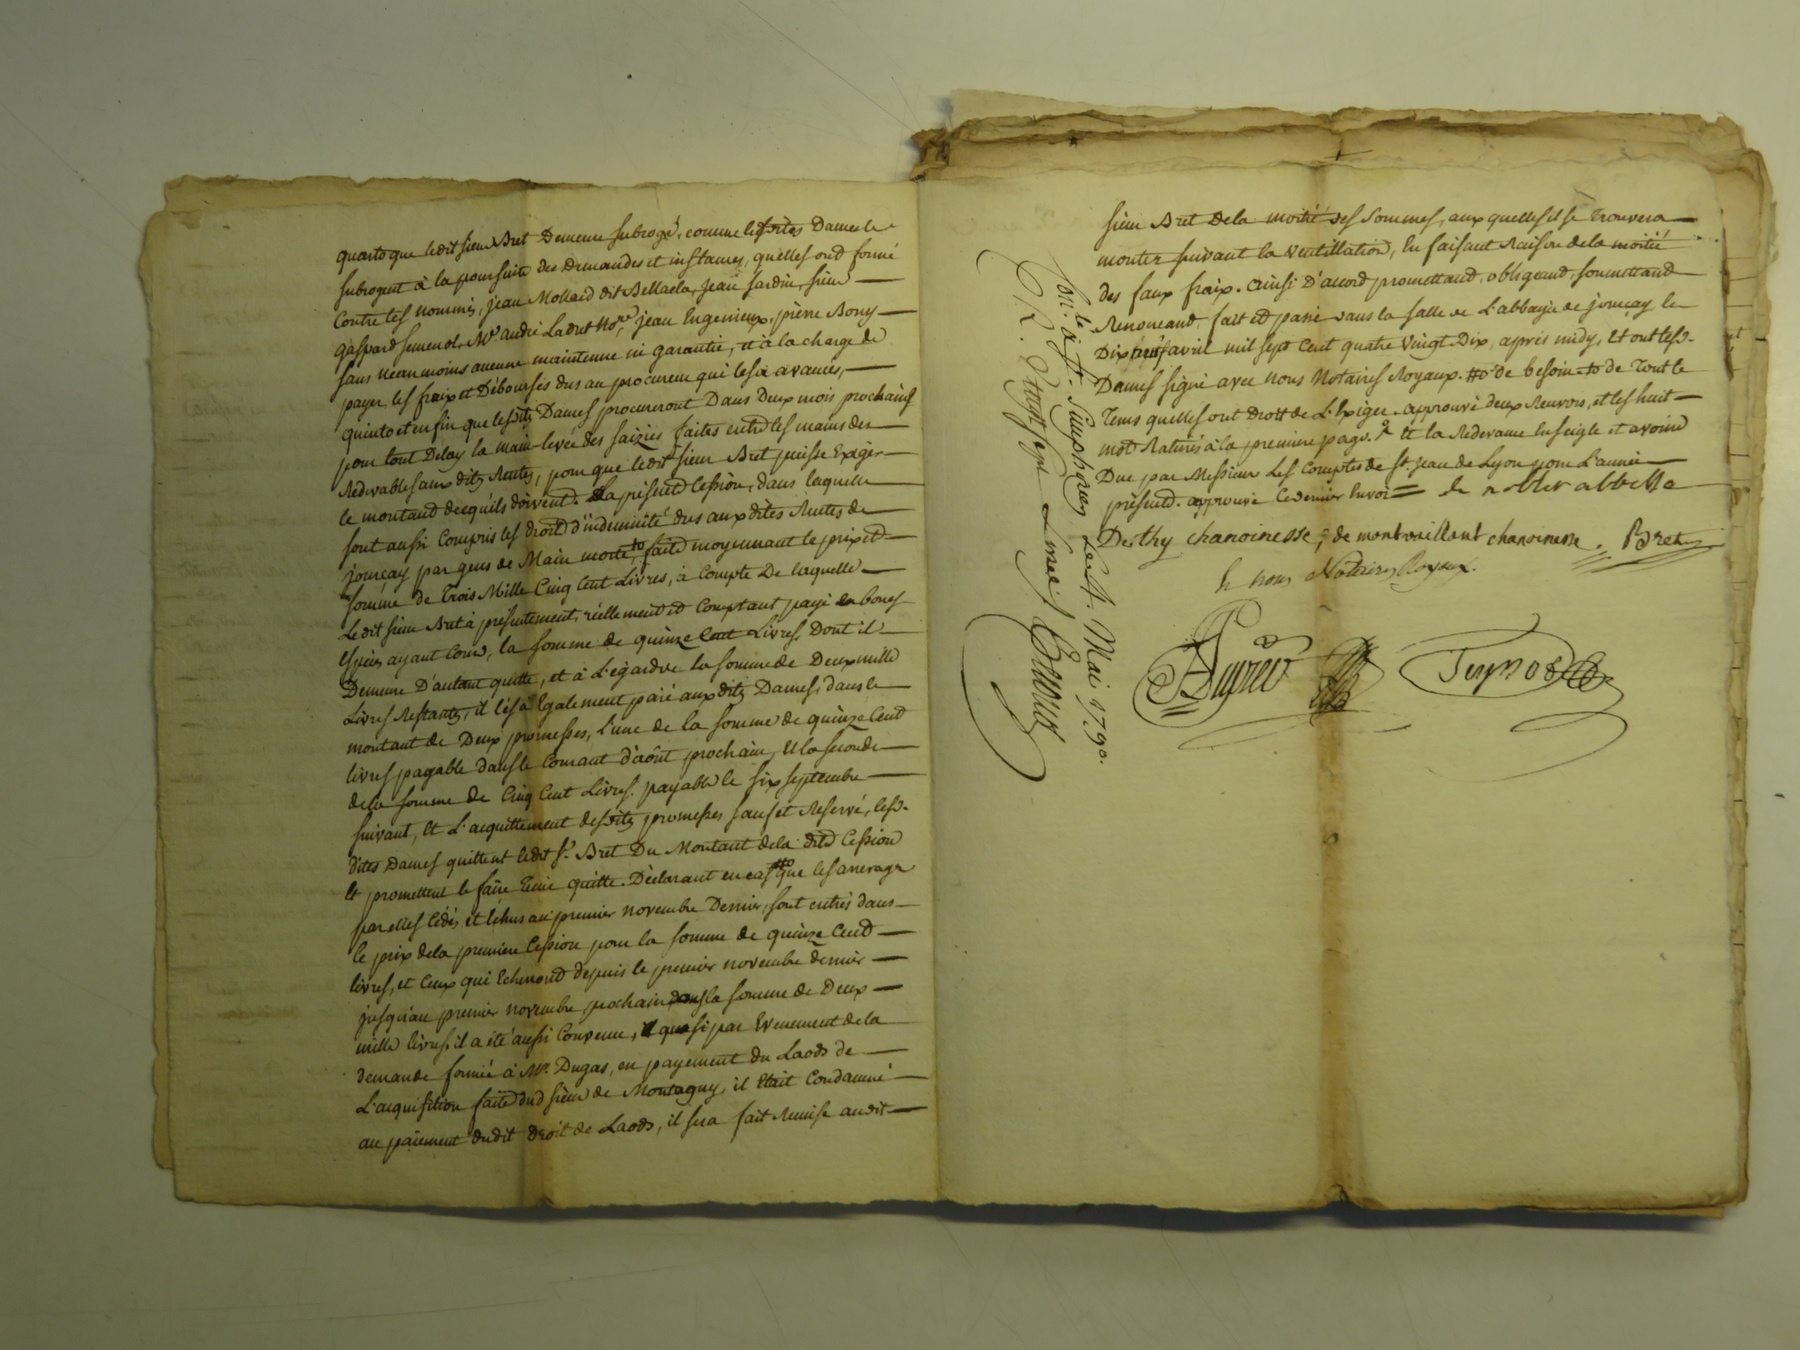 quarto que ledit sieur Bret Demeure subrogé, comme lesdites Dames le
subrogent à la poursuite des demandes et instances, qu'elles ont formé
Contre les nommés, jean Mollard dit Bellacla, jean jardin, sieur
gaspard Semenol, Mr andré Ladret No.re, jean Engenieux, pierre Bony
sans néanmoins aucune maintenue ni garantie, et à la charge de
payer les fraix et Déboursés dus au procureur qui les a avancés,
quinto et enfin que lesdites Dames procureront Dans Deux mois prochains
pour tout Delay la main-levée des saizies faites entre les mains des
Redevables aux dites Rentes, pour que ledit sieur Bret puisse Exiger
le montant de ce qu'ils doivent. La présente Cession, dans laquelle
sont aussi Compris les droits d'indemnité dus aux dites Rentes de
jourcay par gens de Main morte, faite moyennant le prix et
somme de Trois Mille Cinq Cent Livres, à Compte De laquelle
Ledit sieur Bret à présentement, réellement et Comptant payé en bones
Espèces ayant Cours, la somme de quinze Cent Livres, Dont il
Demeure D'autant quitte, et à L'égard de la somme de Deux mille
Livres Restantes, il l'es a Egalement payé aux dites Dames, dans le
montant de Deux promesses, L'une de la somme de quinze Cent
livres payable dans le Courant d'août prochain, Et la seconde
de la somme de Cinq Cent Livres, payable le six septembre
suivant, Et L'acquittement desdites promesses sauf et Reservé, lesd.
dites Dames quittent ledit Sr. Bret Du Montant de la dite Cession
Et promettent le faire tenir quitte. Déclarant en cas que les arrerages
par elles Cédés et Echus au premier novembre Dernier, sont entrés dans
le prix de la premiere Cession pour la somme de quinze Cent
livres, et Ceux qui Echerront depuis le premier novembre dernier
jusqu'au premier novembre prochain dans la somme de Deux
mille livres, il a été aussi Convenu, que si par Evenement de la
demande formée à Mr. Dugas, en payement du Laods de
L'acquisition faite dud sieur de Montagny, il Etait Condamné
au paiement dudit Droit de Laods, il sera fait Remise audit
sieur Bret De la moitié des Sommes, aux quelles il se trouvera
monter suivant la Ventillation, En faisant Raison de la moitié
des faux fraix. ainsi D'accord promettant, obligeant, soumettant
Renonceant, fait et passé dans la salle de L'abbaye de jourcay le
Dix avril mil sept Cent quatre Vingt-Dix, après midy, Et ont lesd.
Dames signé avec nous Notaires Royaux. # de besoin # de Tout le
Tems quelles ont Droit de L'Exiger approuvé deux Renvois, et les huit
mot Raturés à la première page. & la Redevance En seigle et avoine
Due par Messieurs Les Comptes de St. jean de Lyon pour L'année
présente. approuvé Ce dernier Renvoi = de abbesse
De thy chanoinesse; de montrvillant chanoinesse. Bret
& nous Notaires Royaux.
Le Mai 1790.